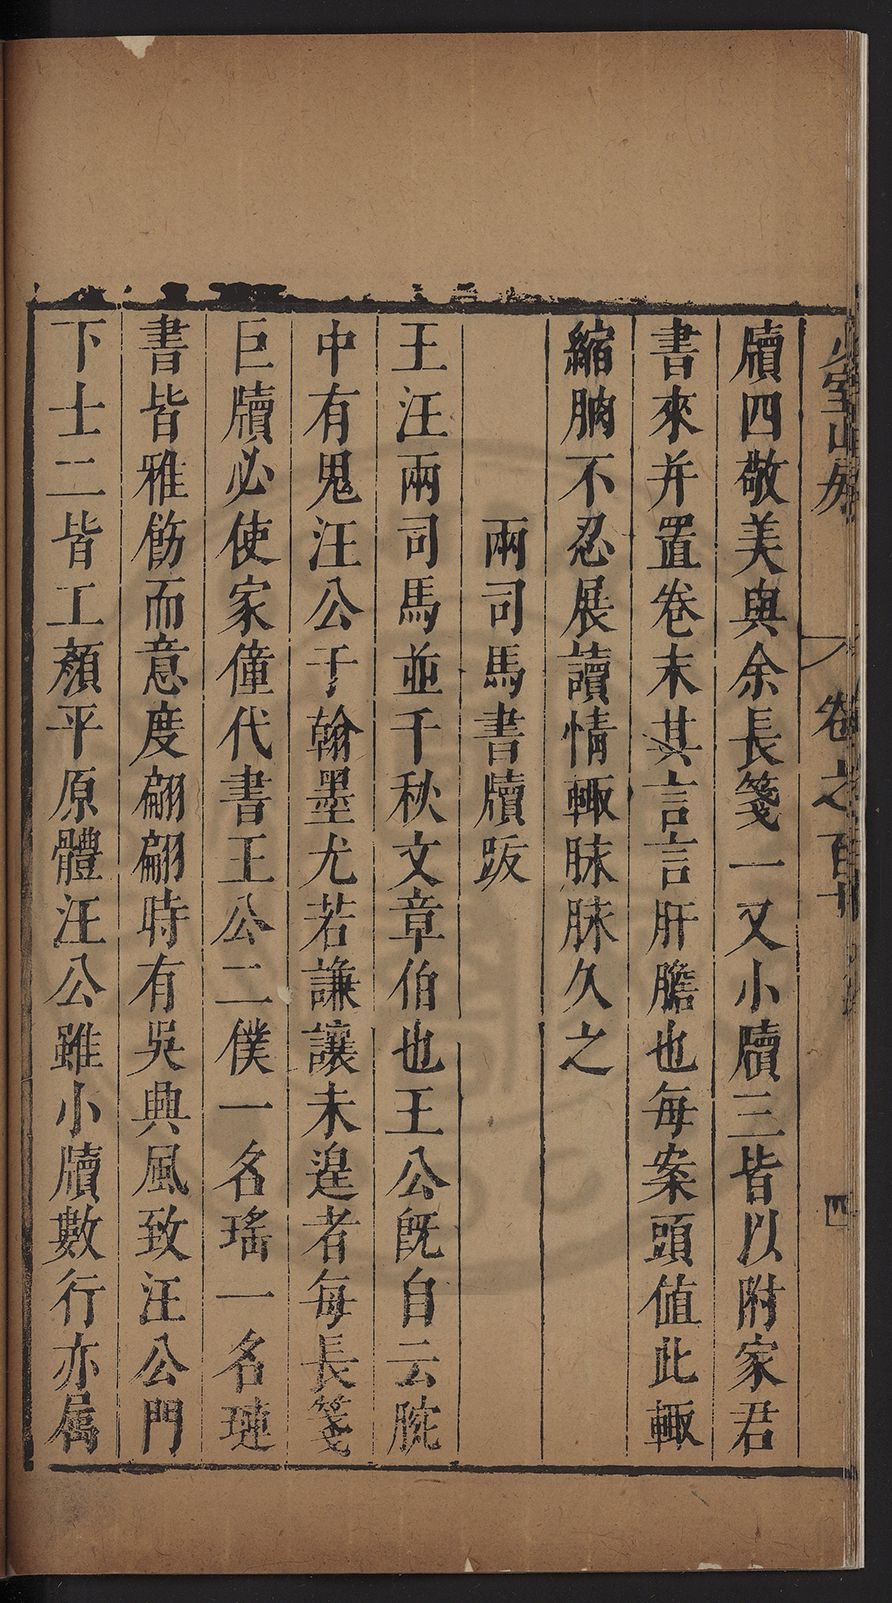 卷之百
四
牘四敬美與余長箋一又小牘三皆以附家君
書來并置卷末其言言肝膽也每案頭値此輙
縮朒不忍展讀情輙脉脉久之
兩司馬書牘跋
王汪兩司馬並千秋文章伯也王公旣自云腕
中有鬼汪公于翰墨尤若謙讓未遑者每長箋
巨牘必使家僮代書王公二僕一名瑤一名璉
書皆雅飭而意度翩翩時有吳興風致汪公門
下士二皆工顏平原體汪公雖小牘數行亦属